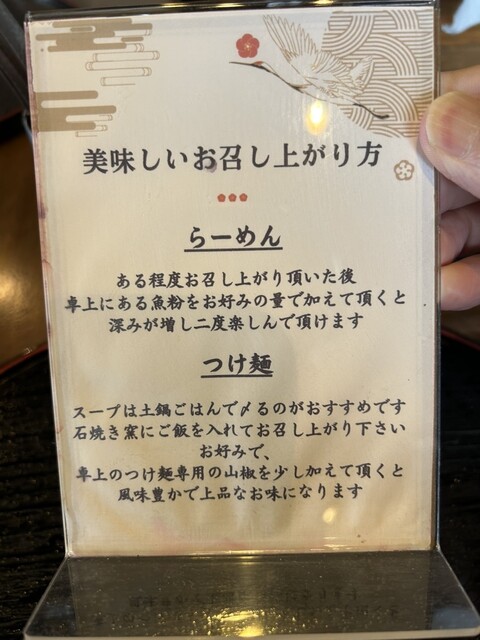 美味しいお召し上がり方
らーめん
ある程度お召し上がり頂いた後
卓上にある魚粉をお好みの量で加えて頂くと
深みが増し二度楽しんで頂けます
つけ麺
スープは土鍋ごはんで〆るのがおすすめです
石焼き窯にご飯を入れてお召し上がり下さい
お好みで、
卓上のつけ麺専用の山椒を少し加えて頂くと
風味豊かで上品なお味になります